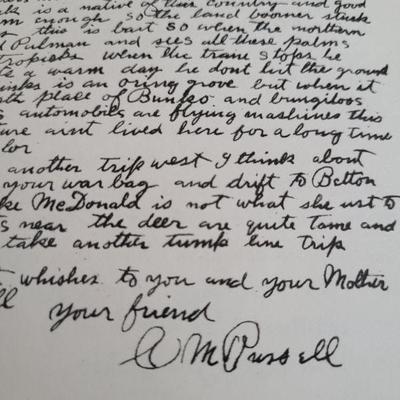 is a native of this country and good
enough so the land boomer stuck
this is bart so when the northern
Pulman and sees all these palms
tropicks when the trane stops he
a warm day he dont hit the ground
thinks is an orng grove but when it
place of Bunko and bungiloos
automobils are flying mashines this
ture aint lived here for a long time
lor
another trip west I think about
your war bag and drift to Belton
ke McDonald is not what she ust to
s near the deer are quite tame and
take another tump line trip
whishes to you and your Mother
ll your friend
C M Russell